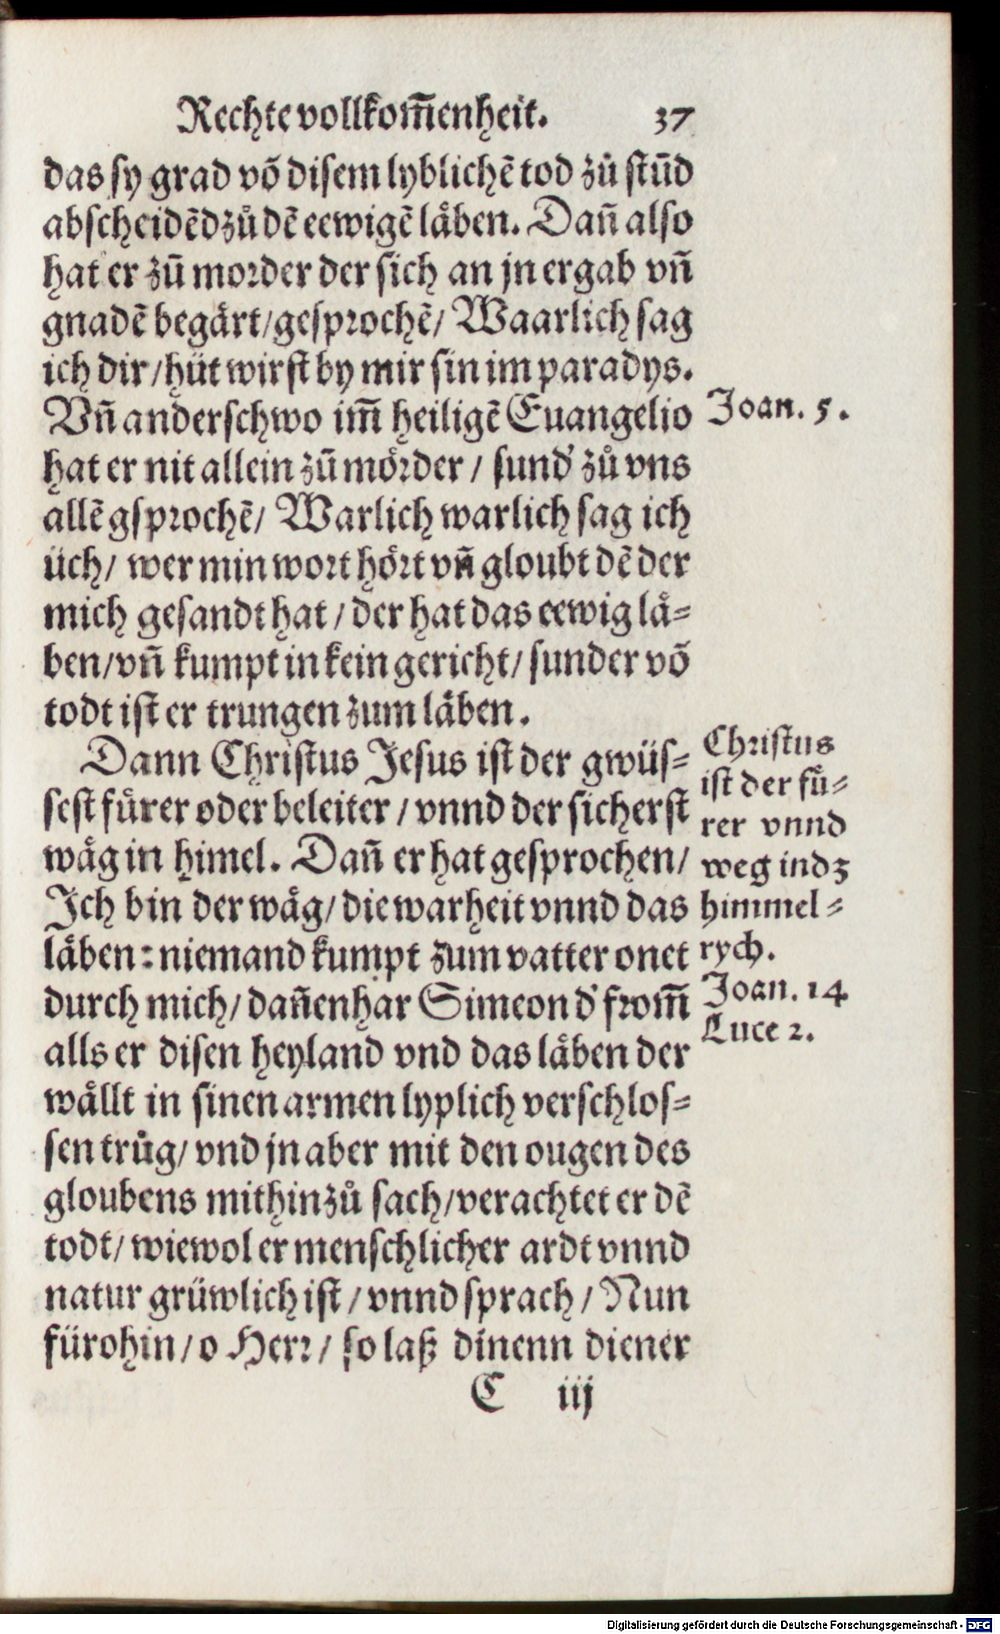 Rechte vollkom̃enheit. 37
das sy grad võ disem lyblichẽ tod zů stũd
abscheidẽd zů dẽ eewigẽ lâben. Dañ also
hat er zũ morder der sich an jn ergab vñ
gnadẽ begärt/ gesprochẽ/ Waarlich sag
ich dir/ hüt wirst by mir sin im paradys.
Vñ anderschwo im̃ heiligẽ Euangelio
Joan. 5.
hat er nit allein zũ mörder/ sund' zů vns
allẽ gsprochẽ/ Warlich warlich sag ich
üch/ wer min wort hört vñ gloubt dẽ der
mich gesandt hat/ der hat das eewig lä⸗
ben/ vñ kumpt in kein gericht/ sunder võ
todt ist er trungen zum läben.
Dann Christus Jesus ist der gwüs⸗
sest fürer oder beleiter/ vnnd der sicherst
wäg in himel. Dañ er hat gesprochen/
Ich bin der wäg/ die warheit vnnd das
läben: niemand kumpt zum vatter onet
durch mich/ dañenhar Simeon d' from̃
alls er disen heyland vnd das läben der
wällt in sinen armen lyplich verschlos⸗
sen trůg/ vnd jn aber mit den ougen des
gloubens mithinzů sach/ verachtet er dẽ
todt/ wiewol er menschlicher ardt vnnd
natur grüwlich ist/ vnnd sprach/ Nun
fürohin/ o Herr/ so laß dinenn diener
Christus
ist der fü⸗
rer vnnd
weg in dz
himmel⸗
rych.
Joan. 14
Luce 2.
C iij
Digitalisierung gefördert durch die Deutsche Forschungsgemeinschaft - DFG